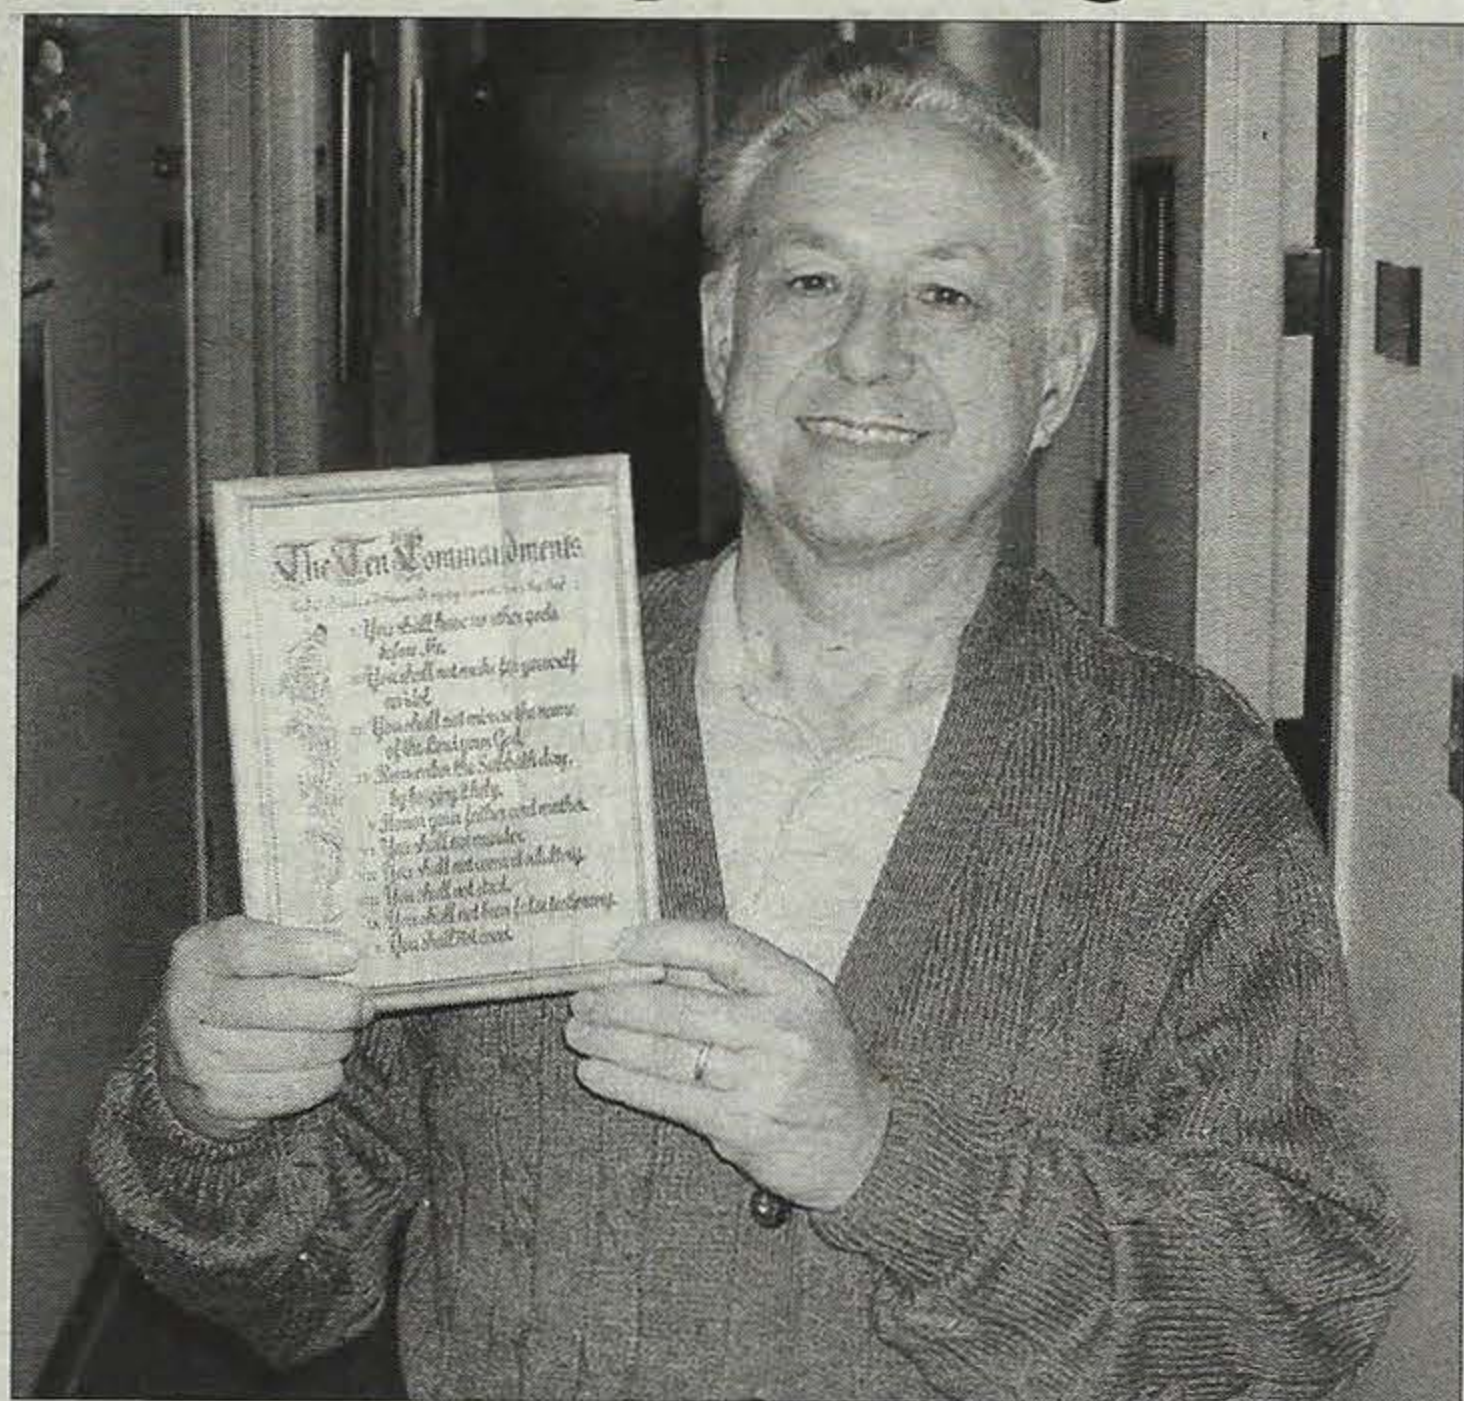 The Ten Commandments
You shall have no other gods
before Me.
You shall not make for yourself
an idol.
You shall not misuse the name
of the Lord your God.
Remember the Sabbath day,
by keeping it holy.
Honor your father and mother.
You shall not murder.
You shall not commit adultery.
You shall not steal.
You shall not bear false testimony.
You shall not covet.